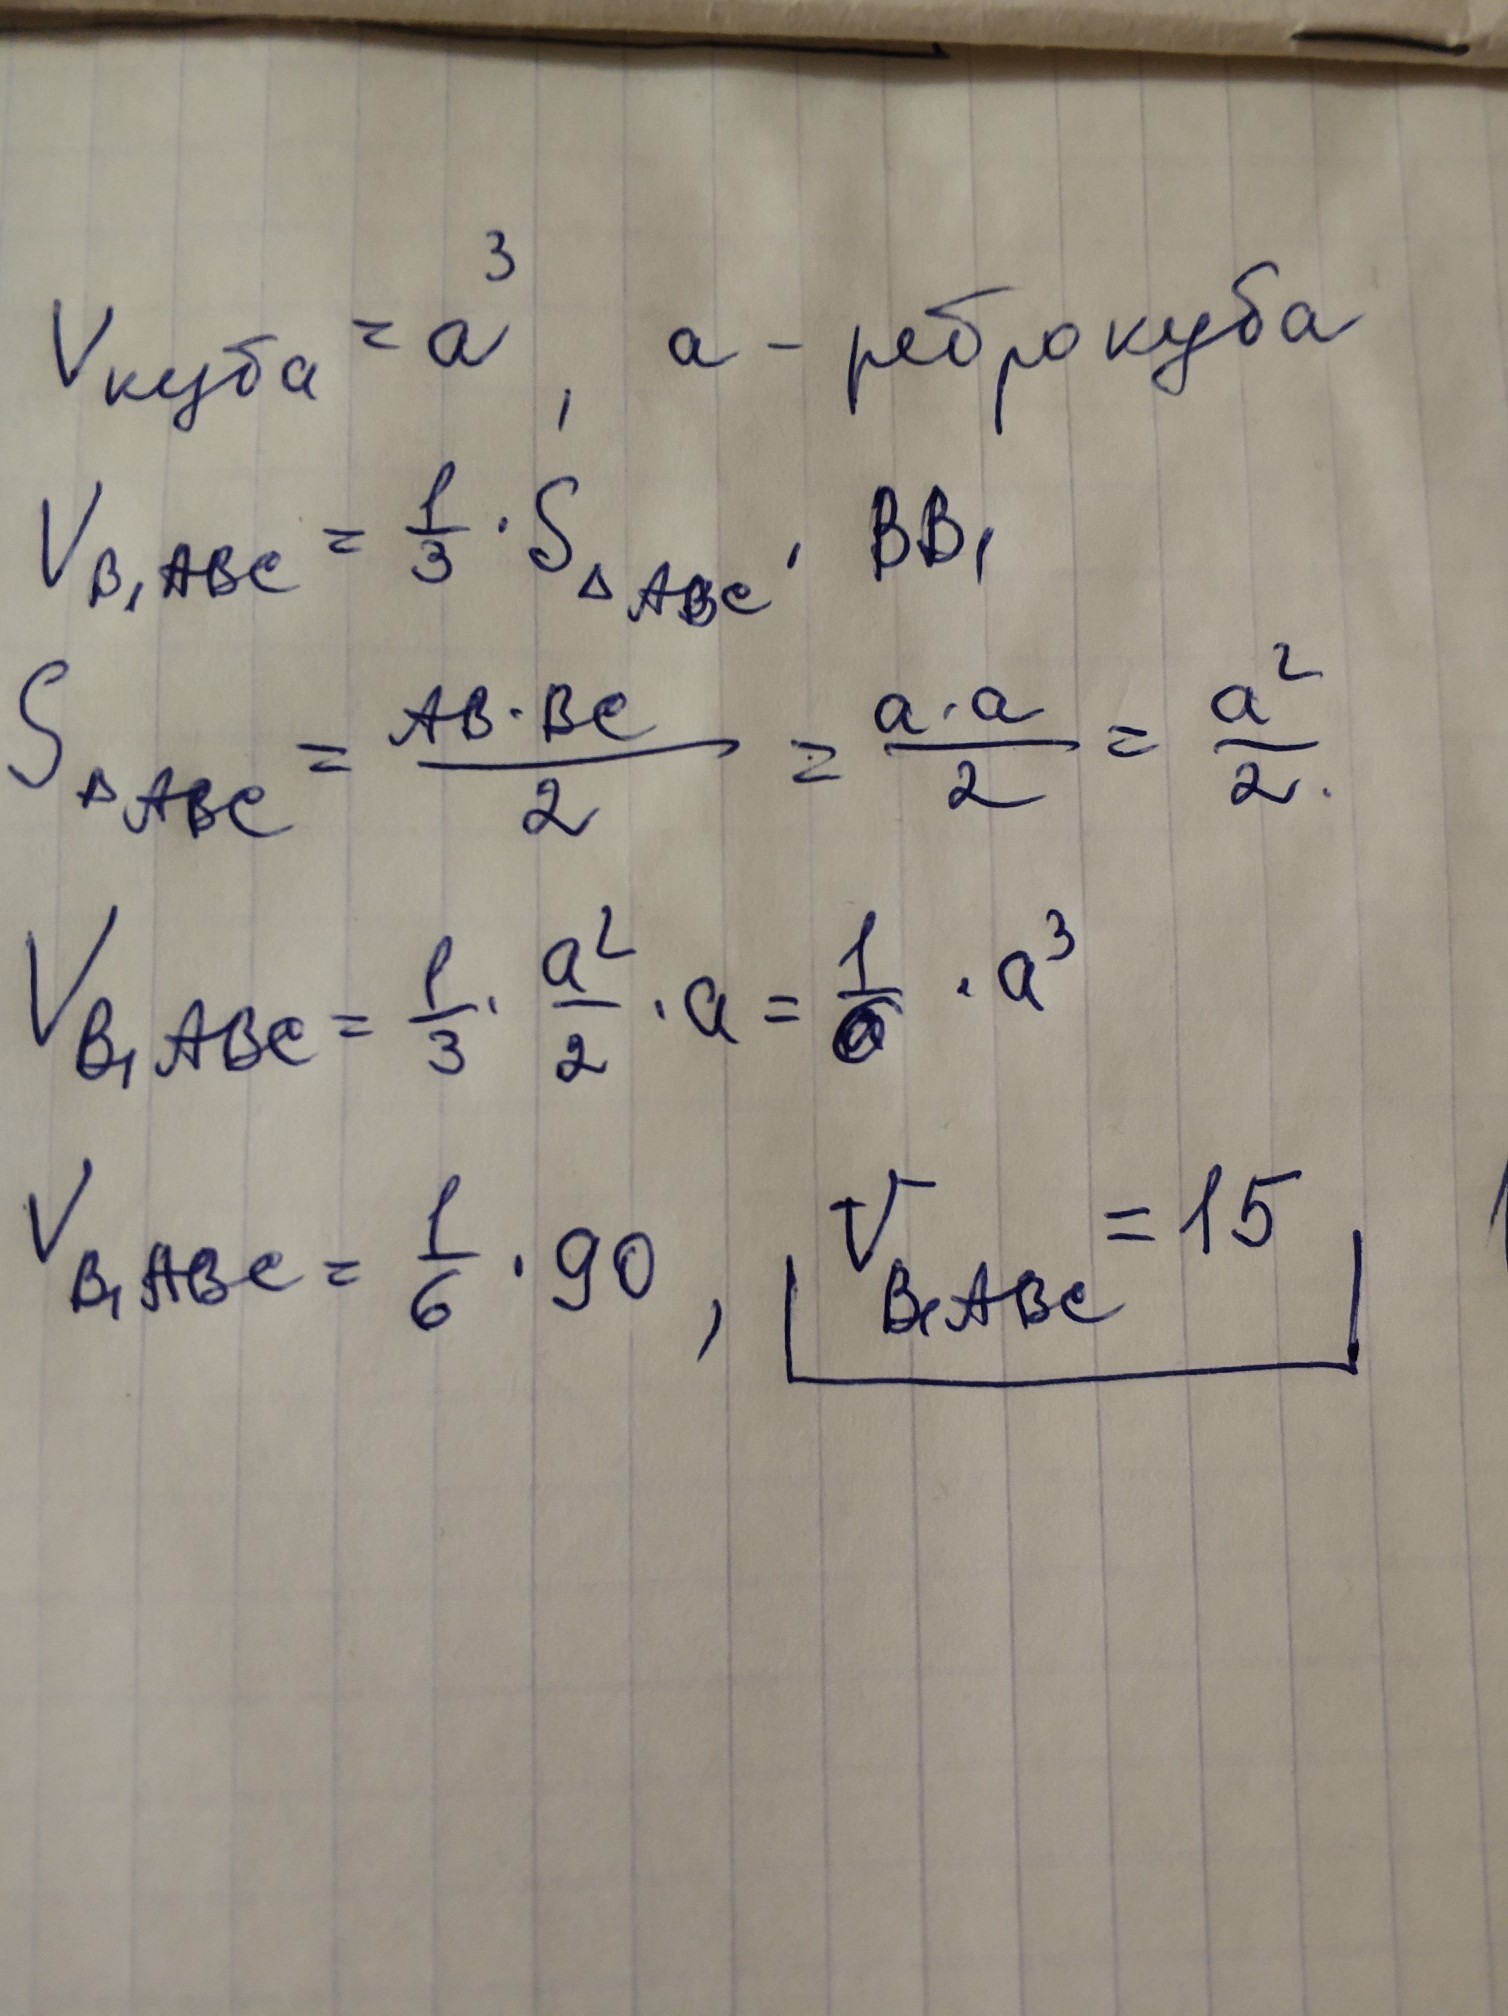 Vкуба = a³, a - ребро куба
V_B₁ABC = 1/3 · S_△ABC · BB₁
S_△ABC = AB·BC/2 = a·a/2 = a²/2.
V_B₁ABC = 1/3 · a²/2 · a = 1/6 · a³
V_B₁ABC = 1/6 · 90, V_B₁ABC = 15